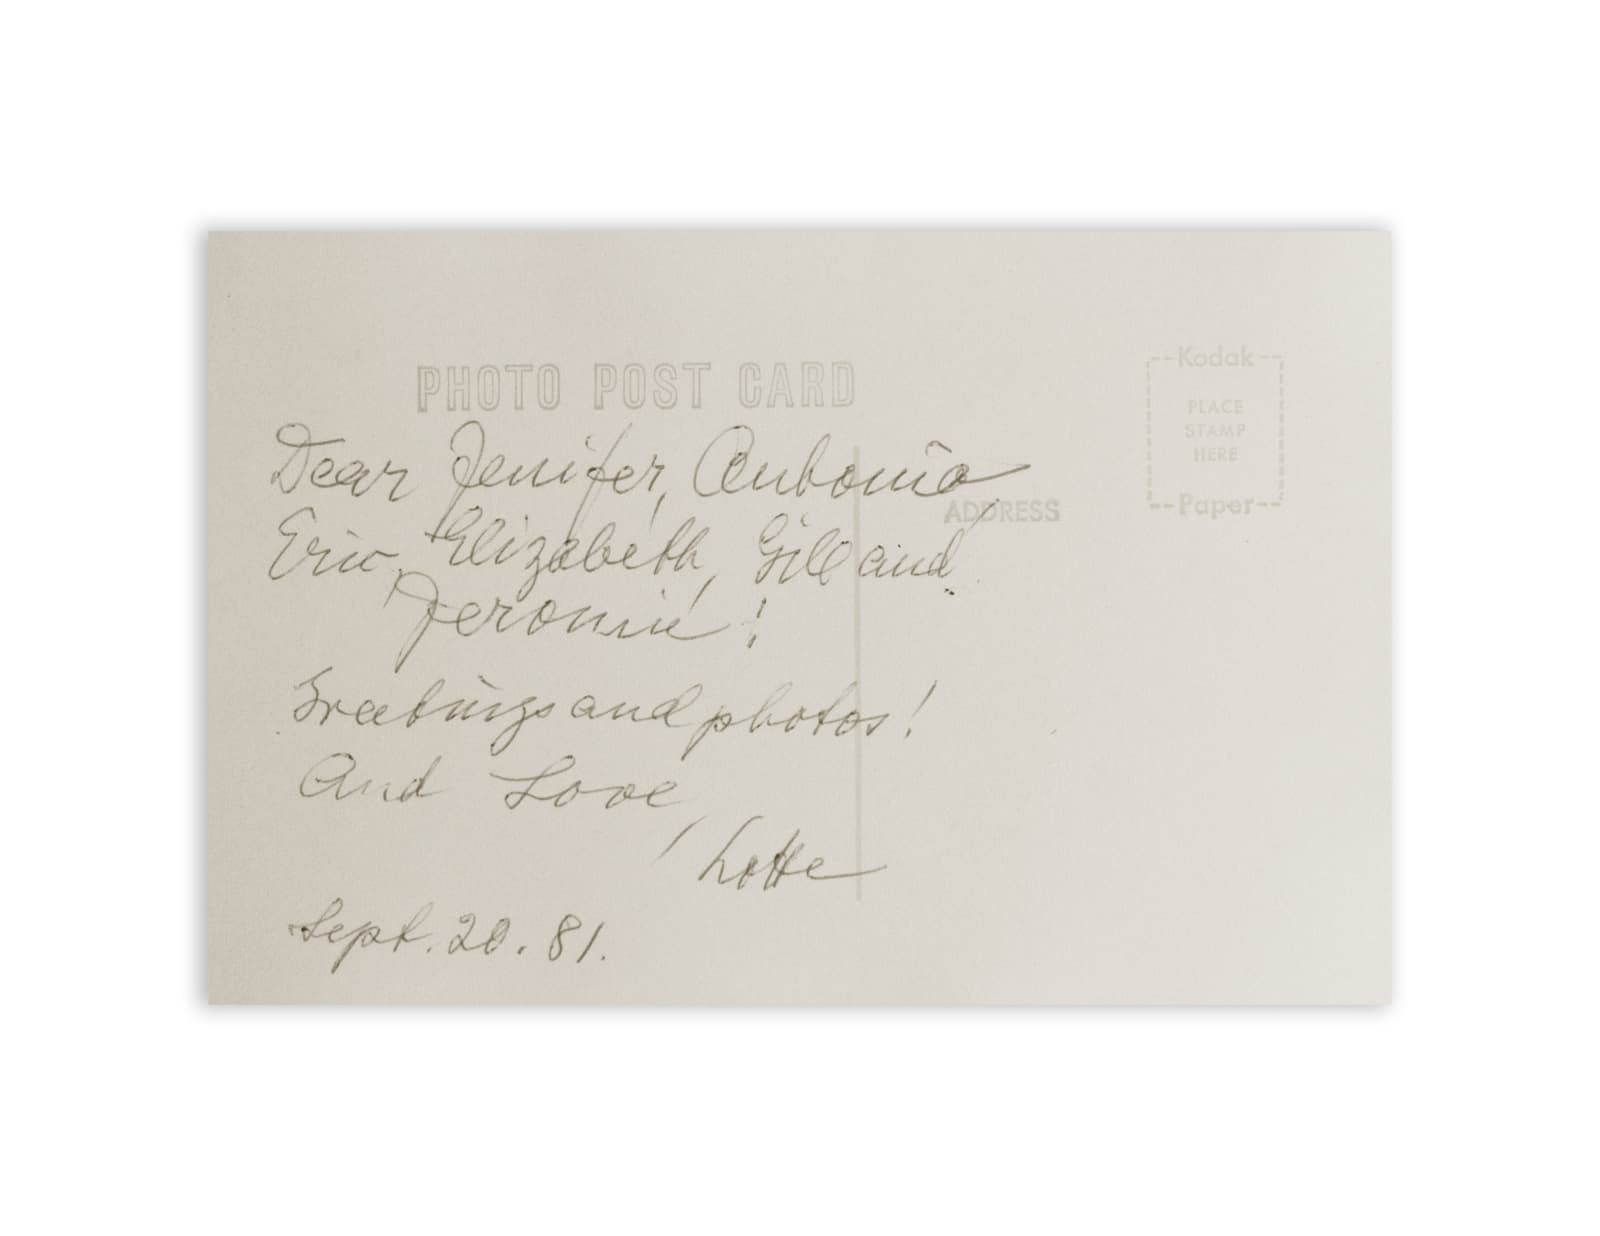 PHOTO POST CARD
Kodak
PLACE
STAMP
HERE
Paper
ADDRESS
Dear Jenifer, Antonia
Eric, Elizabeth, Gill and
Jeromie!
Greetings and photos!
And Love,
Lotte
Sept. 20. 81.